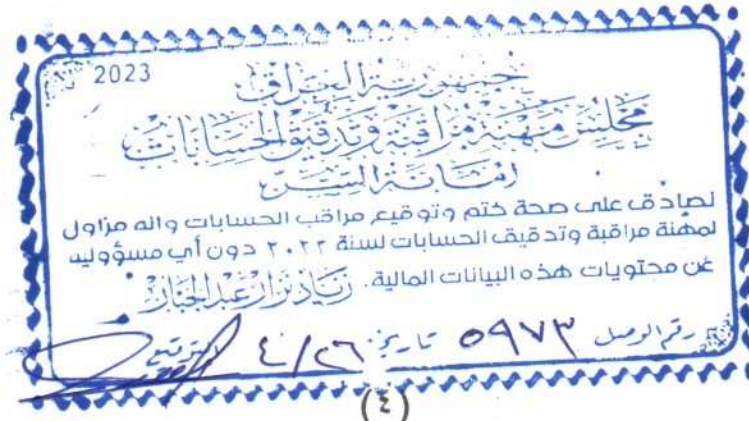 2023
جمهورية العراق
مجلس مهنة مراقبة وتدقيق الحسابات
امانة السر
نصادق على صحة ختم وتوقيع مراقب الحسابات وانه مزاول
لمهنة مراقبة وتدقيق الحسابات لسنة ٢٠٢٢ دون أي مسؤولية
عن محتويات هذه البيانات المالية. زياد نزار عبد الجبار
رقم الوصل ٥٩٧٣ تاريخ ٤/٢٦ التوقيع
(٤)